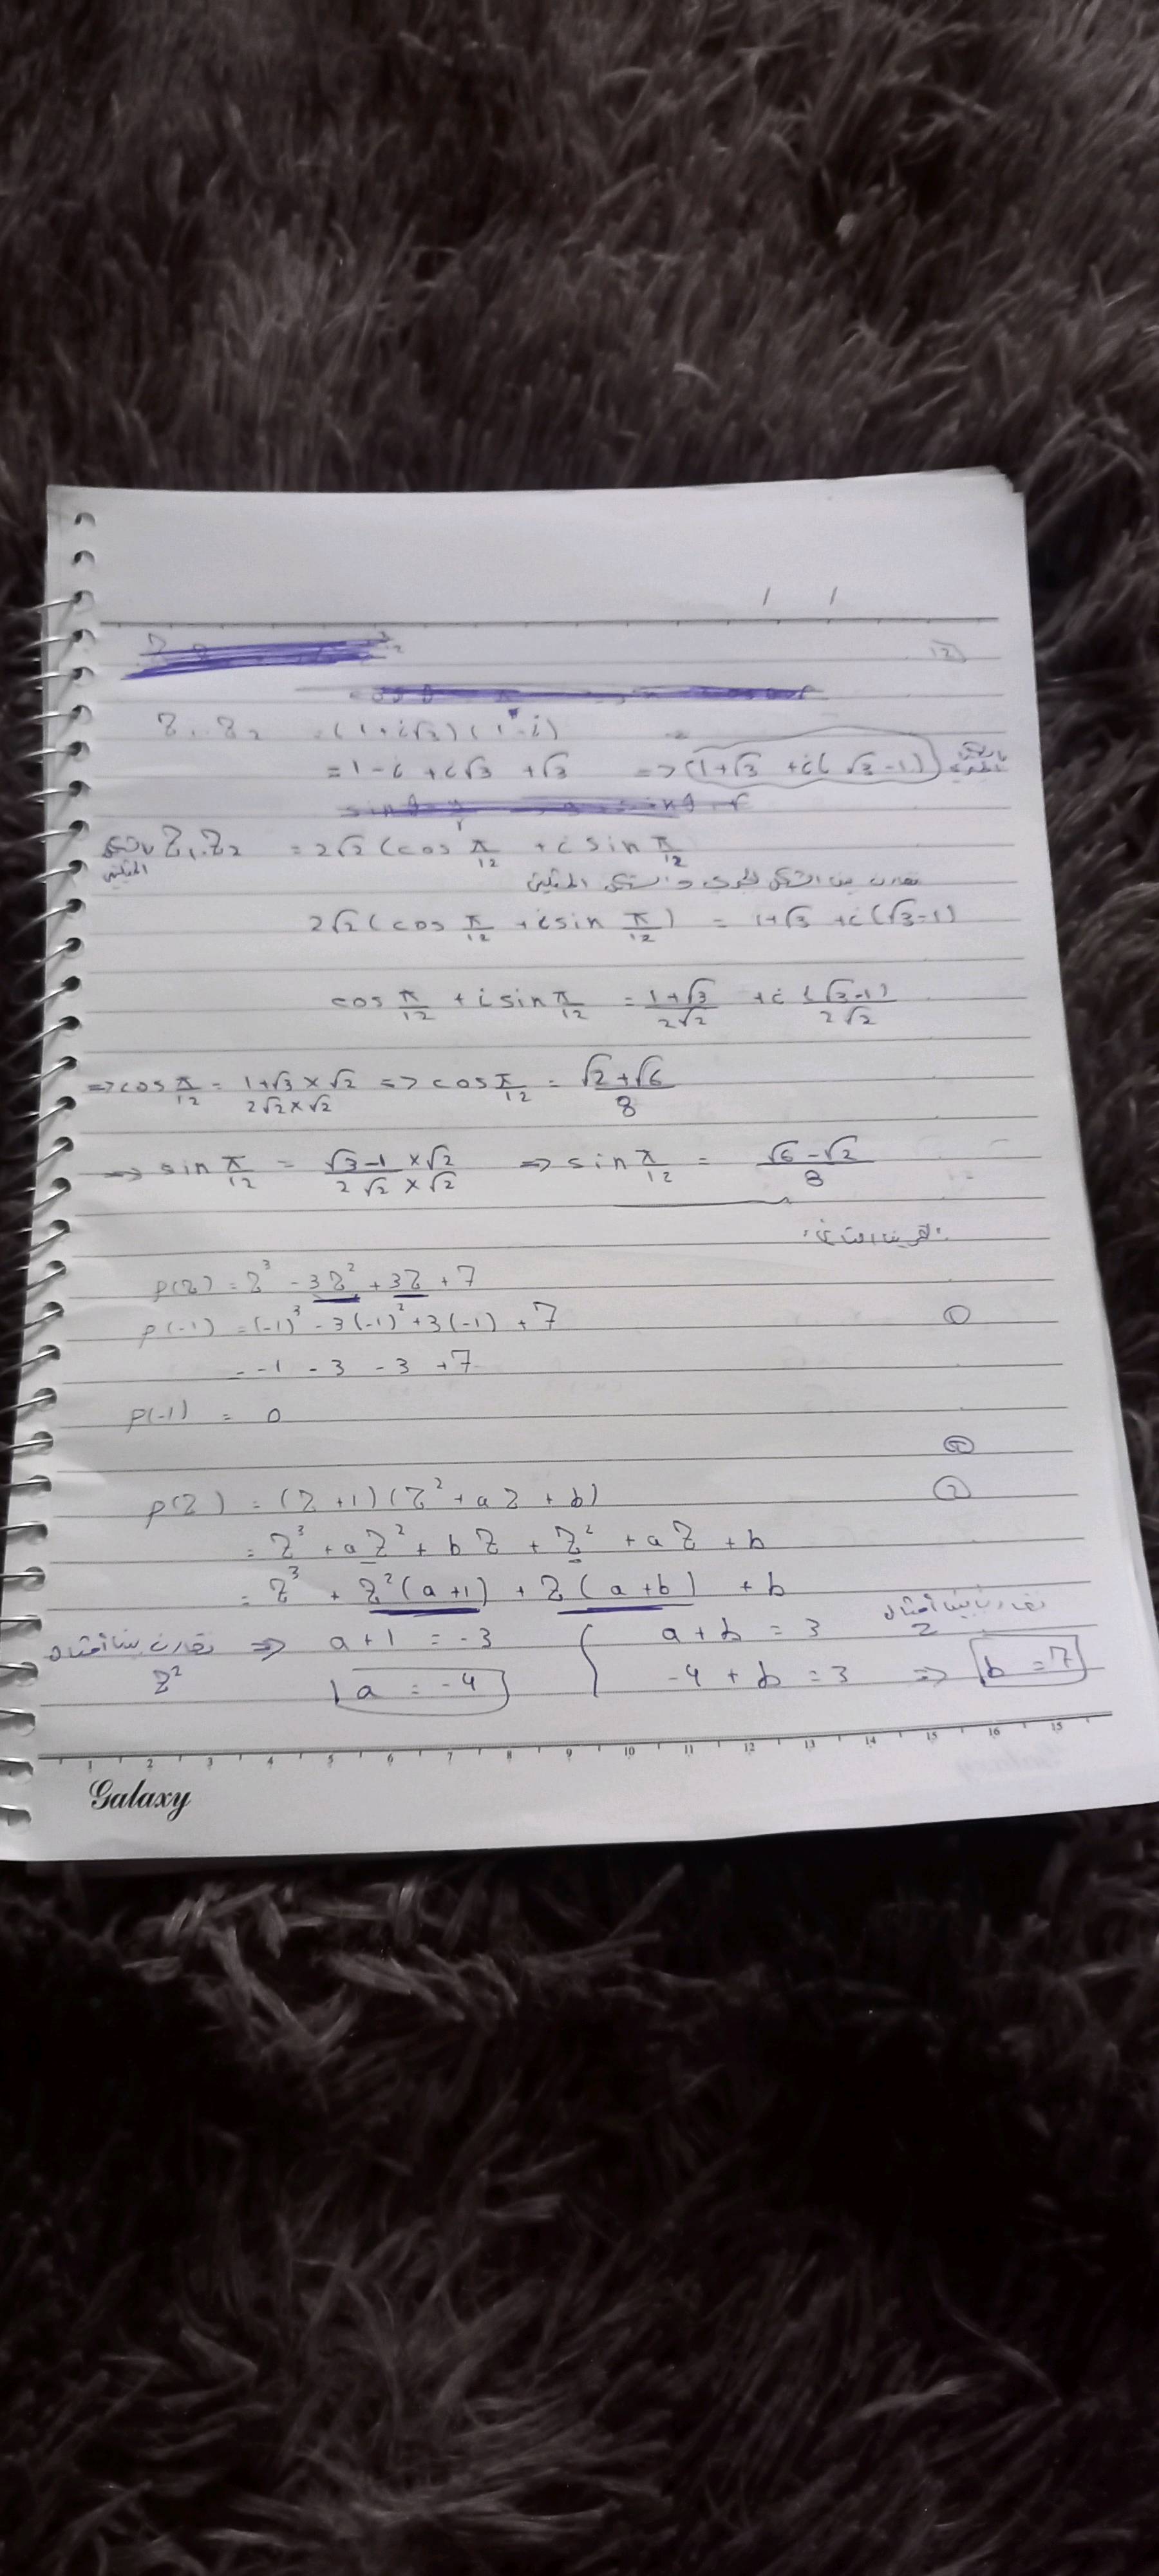 / /
12
Z₁.Z₂ = (1+i√3)(1-i) =
= 1-i +i√3 +√3 => (1+√3 +i(√3-1))
Z₁.Z₂ = 2√2 (cos π/12 + i sin π/12
نقارن بين الشكل الجبري والشكل المثلثي
2√2 (cos π/12 + i sin π/12) = 1+√3 +i(√3-1)
cos π/12 + i sin π/12 = 1+√3/2√2 +i (√3-1)/2√2
=> cos π/12 = 1+√3 × √2/2√2 × √2 => cos π/12 = √2+√6/8
=> sin π/12 = √3-1 × √2/2√2 × √2 => sin π/12 = √6-√2/8
P(Z) = Z³ - 3Z² + 3Z + 7
P(-1) = (-1)³ - 3(-1)² + 3(-1) + 7 ①
= -1 - 3 - 3 + 7
P(-1) = 0
P(Z) = (Z+1)(Z² + aZ + b) ②
= Z³ + aZ² + bZ + Z² + aZ + b
= Z³ + Z²(a+1) + Z(a+b) + b
نقارن بين أمثال Z² => a+1 = -3 a+b = 3 نقارن بين أمثال Z
a = -4 -4+b = 3 => b = 7
1 2 3 4 5 6 7 8 9 10 11 12 13 14 15 16 15
Galaxy